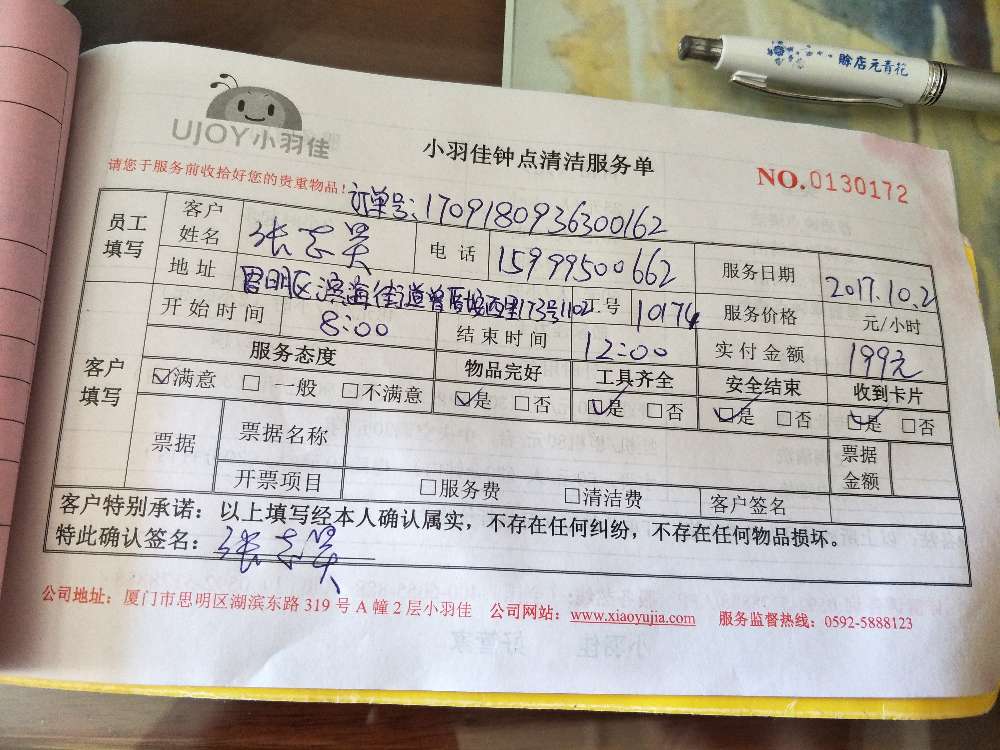 赊店元青花
UJOY小羽佳
小羽佳钟点清洁服务单
NO.0130172
请您于服务前收拾好您的贵重物品!
订单号:1709180936300162
员工填写 客户姓名 张志昊 电话 15999500662 服务日期 2017.10.2
地址 思明区滨海街道曾厝垵西里173号1102 工号 10174 服务价格 元/小时
客户填写 开始时间 8:00 结束时间 12:00 实付金额 199元
服务态度 物品完好 工具齐全 安全结束 收到卡片
☑满意 □一般 □不满意 ☑是 □否 ☑是 □否 ☑是 □否 ☑是 □否
票据 票据名称 票据金额
开票项目 □服务费 □清洁费 客户签名
客户特别承诺:以上填写经本人确认属实,不存在任何纠纷,不存在任何物品损坏。
特此确认签名:张志昊
公司地址:厦门市思明区湖滨东路 319 号 A 幢 2 层小羽佳 公司网站:www.xiaoyujia.com 服务监督热线:0592-5888123